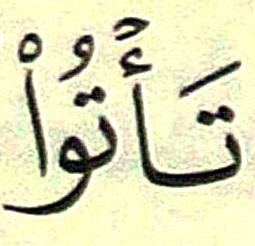 تَأۡتُواْ